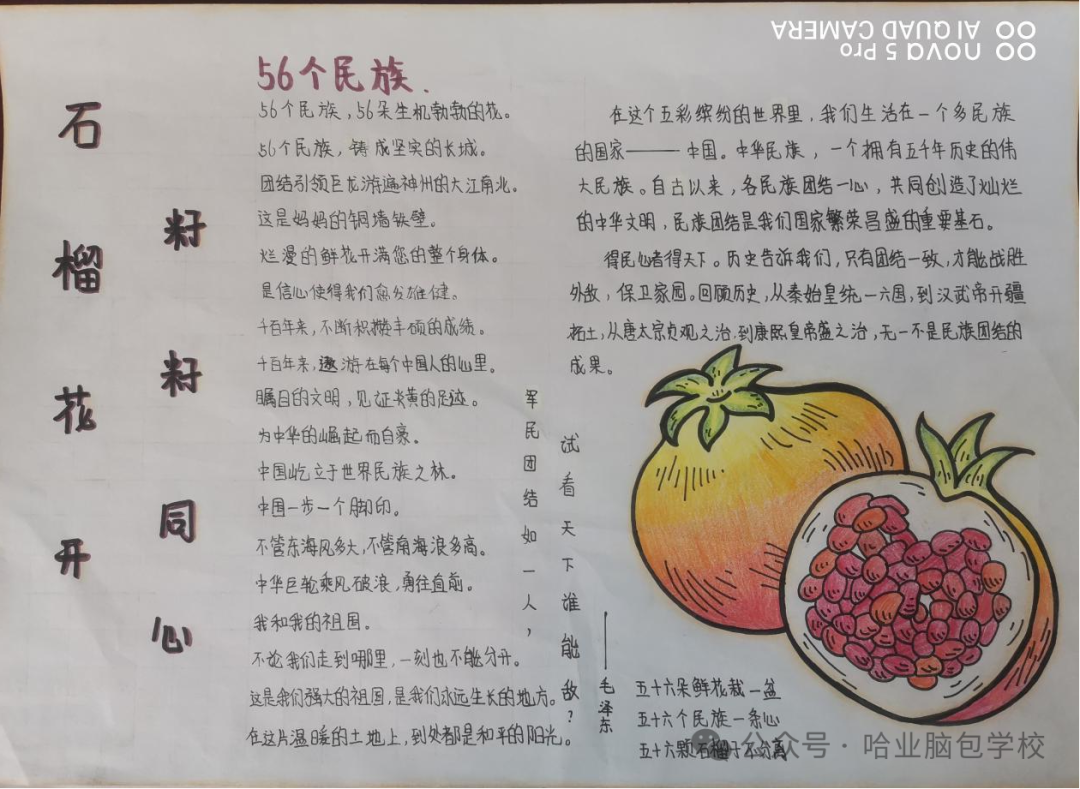 石榴花开
籽籽同心
56个民族.
56个民族，56朵生机勃勃的花。
56个民族，铸成坚实的长城。
团结引领巨龙游遍神州的大江南北。
这是妈妈的铜墙铁壁。
烂漫的鲜花开满您的整个身体。
是信心使得我们愈发雄健。
千百年来，不断积攒丰硕的成绩。
千百年来，遨游在每个中国人的心里。
瞩目的文明，见证炎黄的足迹。
为中华的崛起而自豪。
中国屹立于世界民族之林。
中国一步一个脚印。
不管东海风多大，不管南海浪多高。
中华巨轮乘风破浪，勇往直前。
我和我的祖国。
不论我们走到哪里，一刻也不能分开。
这是我们强大的祖国，是我们永远生长的地方。
在这片温暖的土地上，到处都是和平的阳光。
军民团结如一人，
试看天下谁能敌？
——毛泽东
在这个五彩缤纷的世界里，我们生活在一个多民族
的国家——中国。中华民族，一个拥有五千年历史的伟
大民族。自古以来，各民族团结一心，共同创造了灿烂
的中华文明，民族团结是我们国家繁荣昌盛的重要基石。
得民心者得天下。历史告诉我们，只有团结一致，才能战胜
外敌，保卫家园。回顾历史，从秦始皇统一六国，到汉武帝开疆
拓土，从唐太宗贞观之治，到康熙皇帝盛之治，无一不是民族团结的
成果。
五十六朵鲜花栽一盆
五十六个民族一条心
五十六颗石榴子不分离
公众号·哈业脑包学校
nova 5 Pro
AI QUAD CAMERA